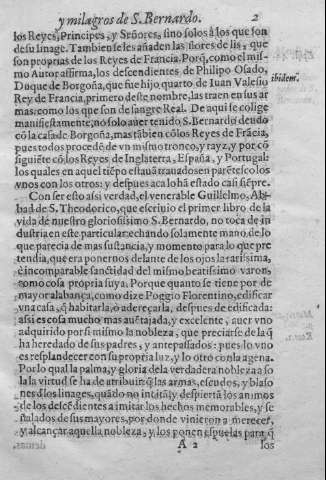 y milagros de S. Bernardo. 2
los Reyes, Principes, y Señores, sino solos à los que son
de su linage. Tambien se les añaden las flores de lis, que
son proprias de los Reyes de Francia. Porq̃, como el mis-
mo Autor affirma, los descendientes de Philipo Osado,
ibidem.
Duque de Borgoña, que fue hijo quarto de Iuan Valesio
Rey de Francia, primero deste nombre, las traen en sus ar
mas: como los que son de sangre Real. De aqui se colige
manifiestamente, no solo auer tenido S. Bernardo deudo
cõ la casa de Borgoña, mas tãbien cõ los Reyes de Frãcia,
pues todos procedẽ de vn mismo tronco, y rayz, y por cõ
siguiẽte cõ los Reyes de Inglaterra, España, y Portugal:
los quales en aquel tiẽpo estauã trauados en parẽtesco los
vnos con los otros: y despues aca lo hã estado casi siẽpre.
Con ser esto assi verdad, el venerable Guillelmo, Ab-
bad de S. Theodorico, que escriuio el primer libro de la
vida de nuestro gloriosissimo S. Bernardo, no toca de in-
dustria en este particular: echando solamente mano, de lo
que parecia de mas sustancia, y momento para lo que pre
tendia, que era ponernos delante de los ojos la rarissima,
è incomparable sanctidad del mismo beatissimo varon,
como cosa propria suya. Porque quanto se tiene por de
mayor alabança, como dize Poggio Florentino, edificar
vna casa, q̃ habitarla, ò adereçarla, despues de edificada:
assi es cosa mucho mas auẽtajada, y excelente, auer vno
adquirido por si mismo la nobleza, que preciarse de la q̃
ha heredado de sus padres, y antepassados: pues lo vno
es resplandecer con su propria luz, y lo otro con la agena.
Por lo qual la palma, y gloria de la verdadera nobleza a so
la la virtud se ha de atribuir: q̃ las armas, escudos, y blaso
nes d̃ los linages, quãdo no incitã, y despiertã los animos
de los descẽdientes a imitar los hechos memorables, y se
ñalados de sus mayores, por donde vinieron a merecer,
y alcançar aquella nobleza, y los ponen espuelas para q̃
A 2 los